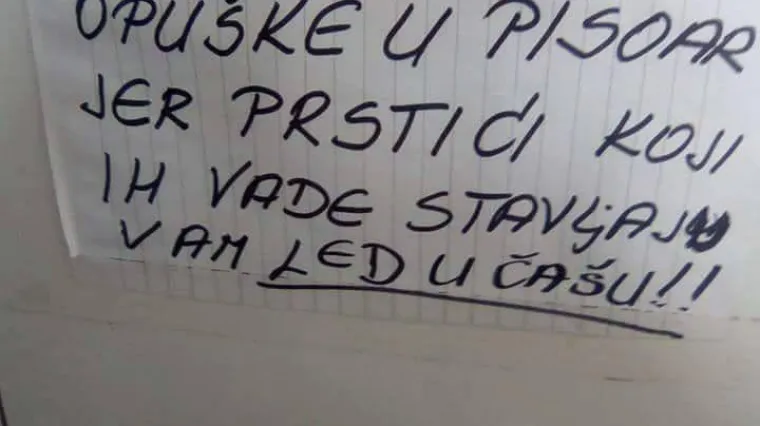 OPUŠKE U PISOAR
JER PRSTIĆI KOJI
IH VADE STAVLJAJU
VAM LED U ČAŠU!!